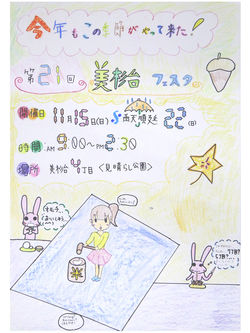 今年もこの季節がやって来た!
第21回 美杉台 フェスタ
開催日 11月15日(日) 雨天順延 22(日)
時間 AM 9:00~PM 2:30
場所 美杉台4丁目 <見晴らし公園>